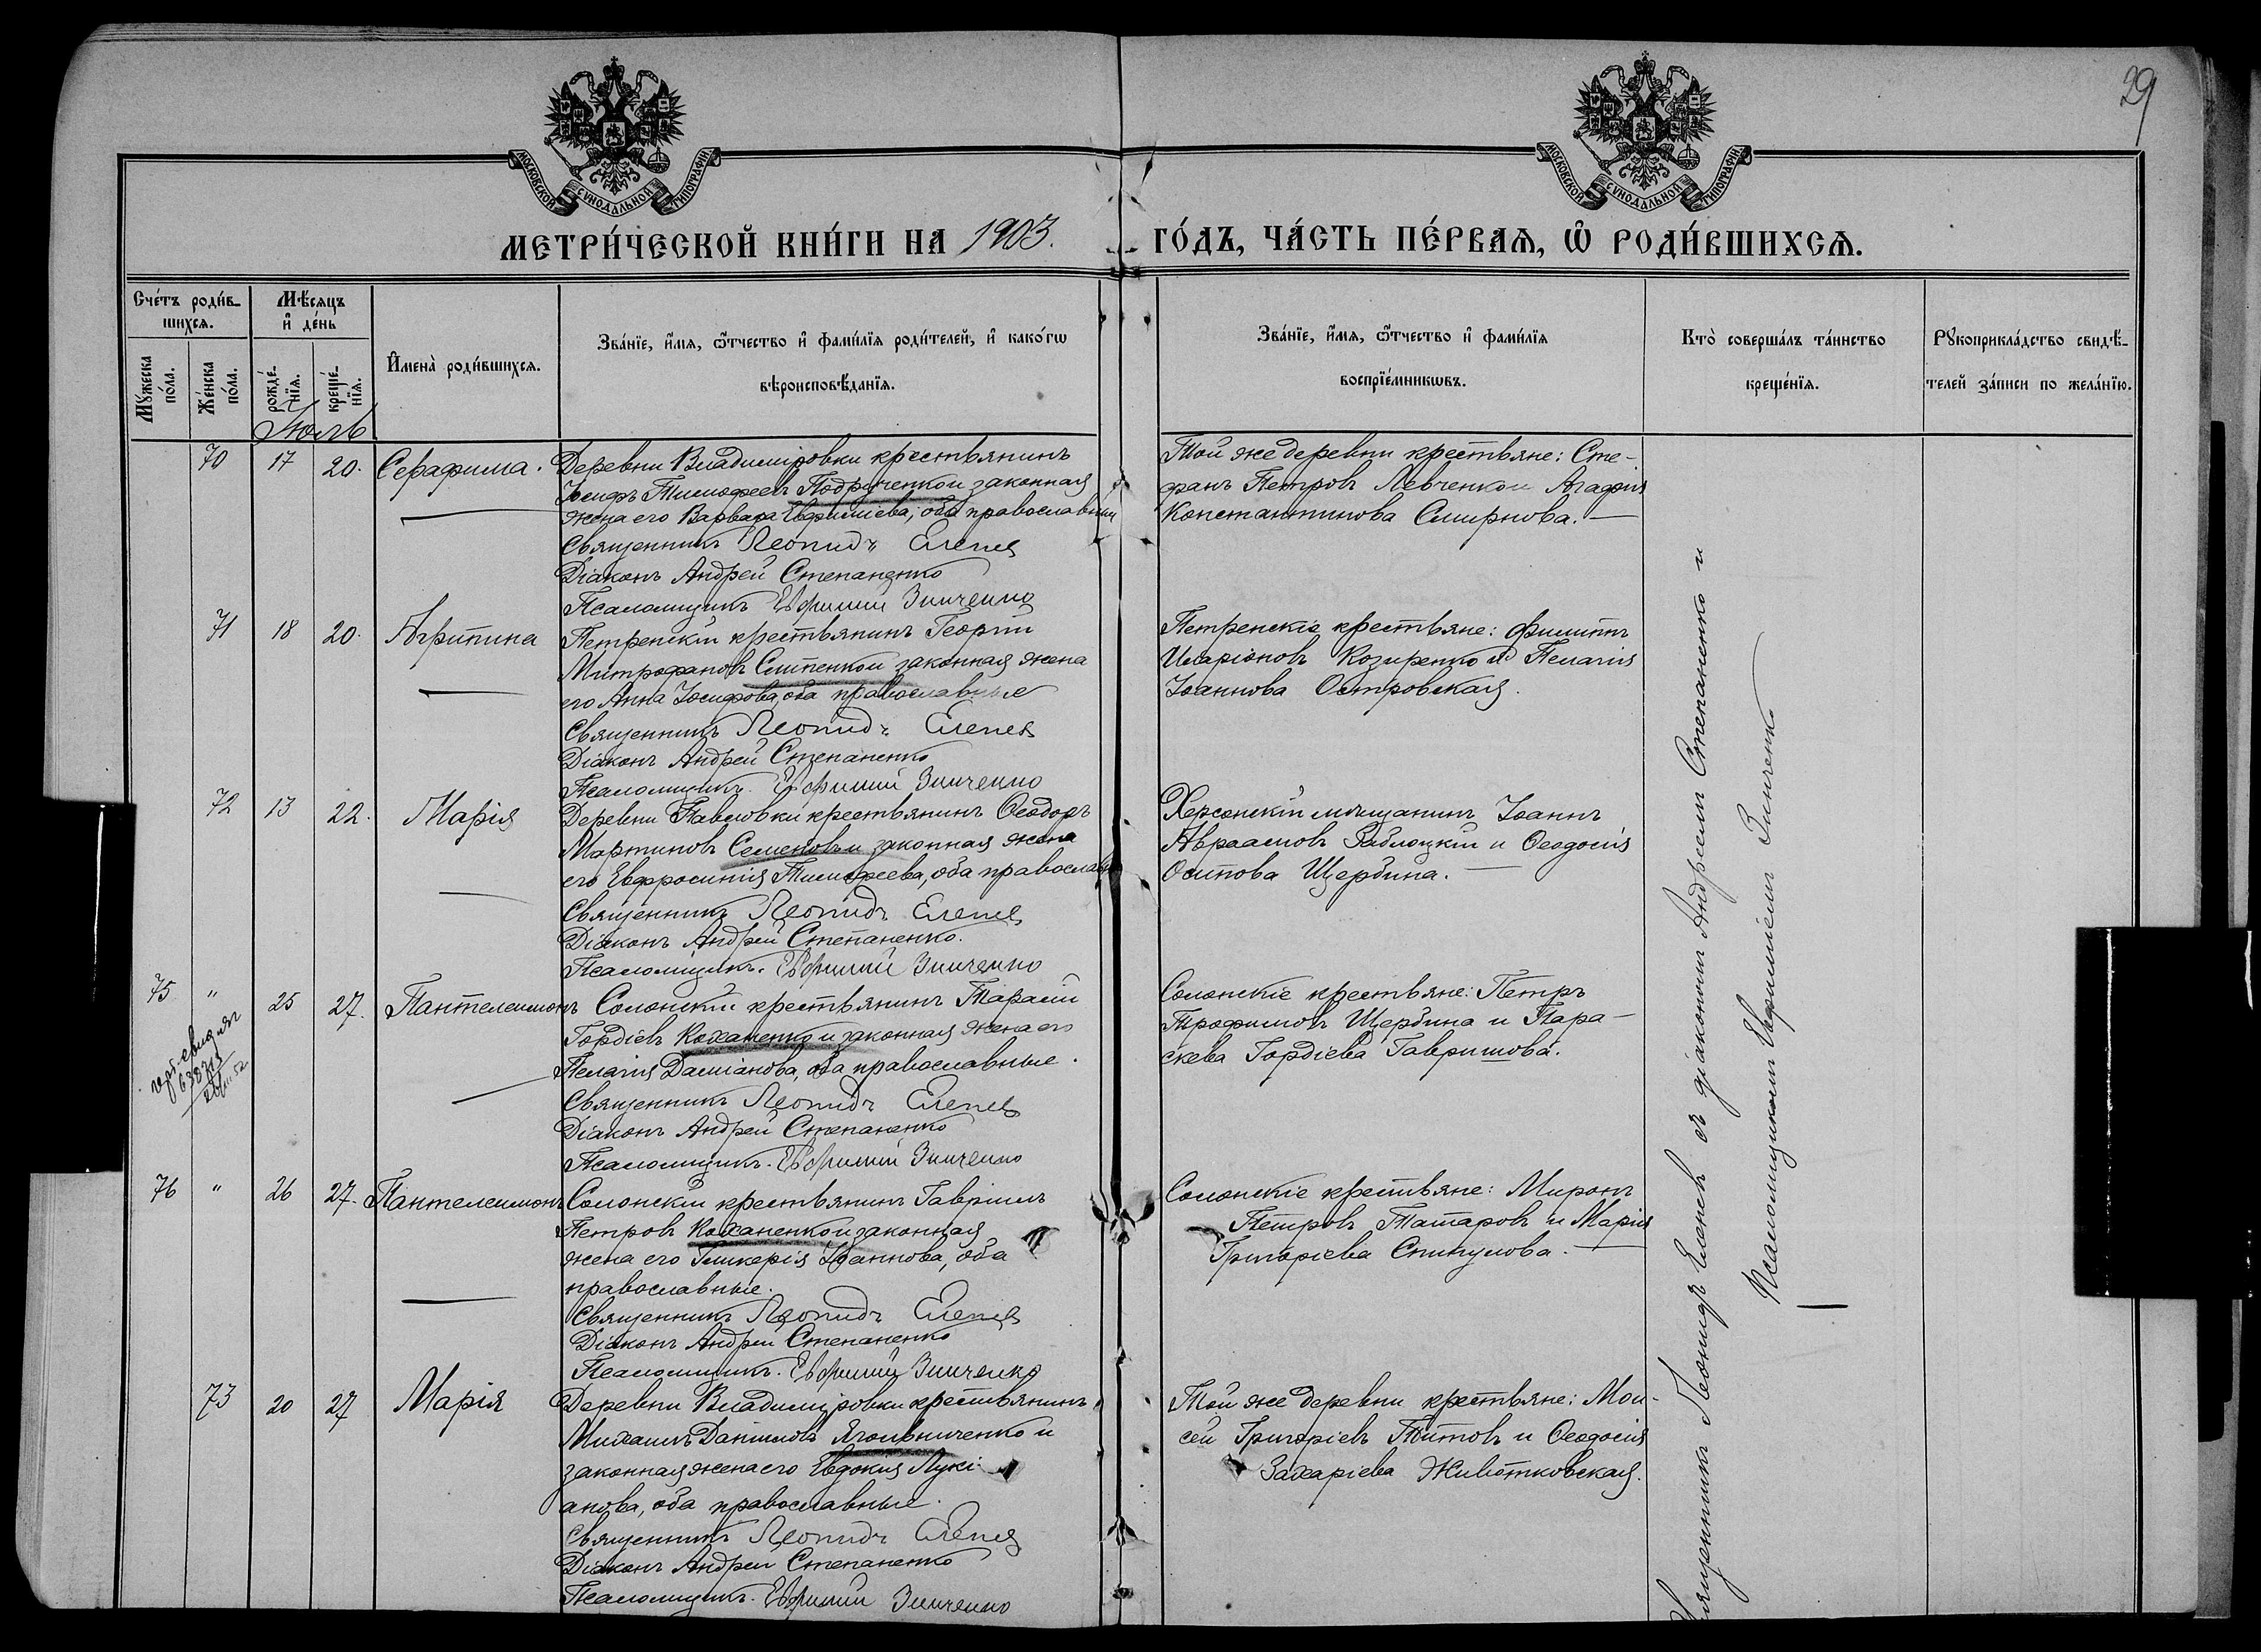 29
МОСКОВСКОЙ СУНОДАЛЬНОЙ ТИПОГРАФІИ
МОСКОВСКОЙ СУНОДАЛЬНОЙ ТИПОГРАФІИ
МЕТРИ́ЧЕСКОЙ КНИ́ГИ НА 1903. ГО́ДЪ, ЧА́СТЬ ПЕ́РВАѦ, Ѽ РОДИ́ВШИХСѦ.
Сче́тъ роди́в-
шихсѧ.
Мѣ́сѧцъ
и҆ де́нь
И҆мена̀ роди́вшихсѧ.
Зва́нїе, и҆́мѧ, ѻ҆́тчество и҆ фами́лїѧ роди́телей, и҆ како́гѡ
вѣроисповѣ́данїѧ.
Зва́нїе, и҆́мѧ, ѻ҆́тчество и҆ фами́лїѧ
воспрїе́мникѡвъ.
Кто̀ соверша́лъ та́инство
креще́нїѧ.
Рꙋкоприкла́дство свидѣ́-
телей за́писи по жела́нїю.
Мꙋ́жеска
по́ла.
Же́нска
по́ла.
рожде́-
нїѧ.
креще́-
нїѧ.
Іюль
70 17 20. Серафима. Деревни Владиміровки крестьянинъ
Іосифъ Тимофеевъ Подрученко и законная
жена его Варвара Евфиміева, оба православныи
Священникъ Леонидъ Еленев
Діаконъ Андрей Степаненко
Псаломщикъ Евфимий Зинченко
Той же деревни крестьяне: Сте-
фанъ Петровъ Левченко и Агафия
Константинова Смирнова. —
71 18 20. Агрипина Петренскій крестьянинъ Георгій
Митрофановъ Слипенко и законная жена
его Анна Іосифова, оба православные
Священникъ Леонидъ Еленев
Діаконъ Андрей Степаненко
Псаломщикъ. Евфимий Зинченко
Петренскіе крестьяне: Филиппъ
Иларіоновъ Козиренко и Пелагия
Іоаннова Островская.
72 13 22. Марія Деревни Павловки крестьянинъ Ѳеодоръ
Мартиновъ Семеновъ и законная жена
его Евфросинія Тимофеева, оба православ
Священникъ Леонидъ Еленев
Діаконъ Андрей Степаненко.
Псаломщикъ. Евфимий Зинченко
Херсонскій мѣщанинъ Іоаннъ
Авраамовъ Заблоцкій и Ѳеодосія
Осипова Щербина. —
75 " 25 27. Пантелеимонъ Солонскій крестьянинъ Тарасій
Гордіевъ Коханенко и законная жена его
Пелагия Даміанова, оба православные.
Священникъ Леонидъ Еленев
Діаконъ Андрей Степаненко
Псаломщикъ. Евфимий Зинченко
Солонскіе крестьяне: Петръ
Трофимовъ Щербина и Пара-
скева Гордіева Гавришова.
76 " 26 27. Пантелеимонъ Солонскій крестьянинъ Гавріилъ
Петровъ Коханенко и законная
жена его Гликерія Іоаннова, оба
православные.
Священникъ Леонидъ Еленев
Діаконъ Андрей Степаненко
Псаломщикъ. Евфимий Зинченко
Солонскіе крестьяне: Миронъ
Петровъ Татаровъ и Марія
Григоріева Спипулова. —
73 20 27 Марія Деревни Владиміровки крестьянинъ
Михаилъ Даніиловъ Ягольниченко и
законная жена его Евдокия Лукі-
анова, оба православные.
Священникъ Леонидъ Еленев
Діаконъ Андрей Степаненко
Псаломщикъ. Евфимий Зинченко
Той же деревни крестьяне: Мои-
сей Григоріевъ Титовъ и Ѳеодосія
Захаріева Животковская.
Священникъ Леонидъ Еленевъ съ діакономъ Андреемъ Степаненко и
Псаломщикомъ Евфиміемъ Зинченко